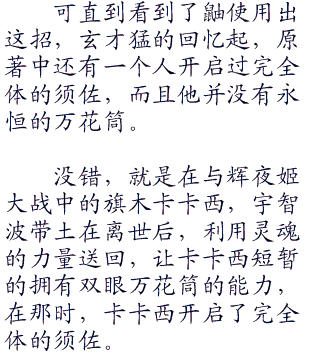 可直到看到了鼬使用出
这招，玄才猛的回忆起，原
著中还有一个人开启过完全
体的须佐，而且他并没有永
恒的万花筒。
没错，就是在与辉夜姬
大战中的旗木卡卡西，宇智
波带土在离世后，利用灵魂
的力量送回，让卡卡西短暂
的拥有双眼万花筒的能力，
在那时，卡卡西开启了完全
体的须佐。